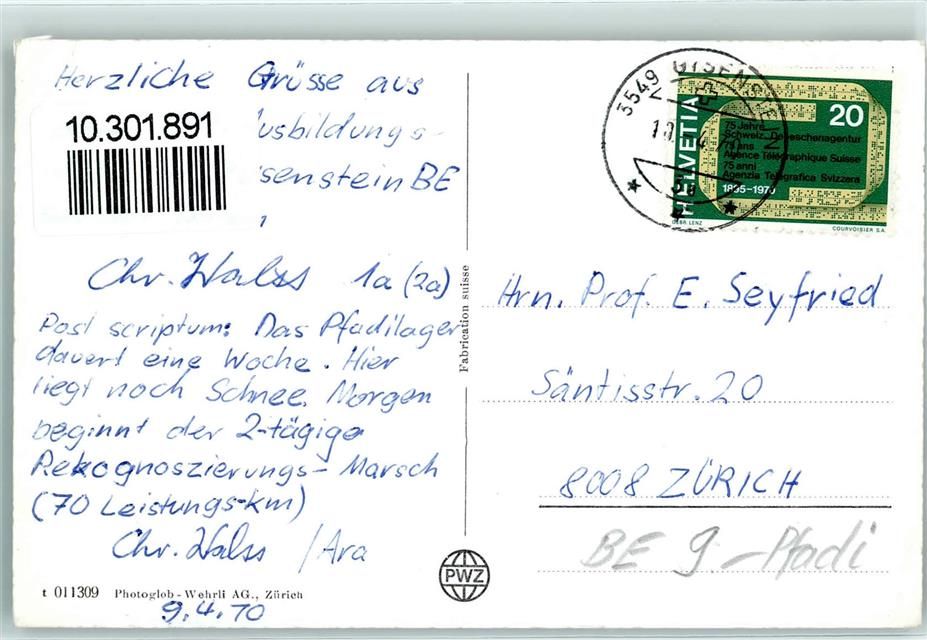 Herzliche Grüsse aus
10.301.891
usbildungs-
senstein BE
Chr. Walss 1a (2a)
Post scriptum: Das Pfadilager
dauert eine Woche. Hier
liegt noch Schnee. Morgen
beginnt der 2-tägige
Rekognoszierungs-Marsch
(70 Leistungs-km)
Chr. Walss / Ara
t 011309 Photoglob-Wehrli AG., Zürich
9.4.70
Fabrication suisse
PWZ
3549 GYSENSTEIN
HELVETIA
20
75 Jahre
Schweiz. Depeschenagentur
75 ans
Agence Télégraphique Suisse
75 anni
Agenzia Telegrafica Svizzera
1895-1970
GEBR. LENZ
COURVOISIER S.A.
Hrn. Prof. E. Seyfried
Säntisstr. 20
8008 ZÜRICH
BE 9 - Pfadi